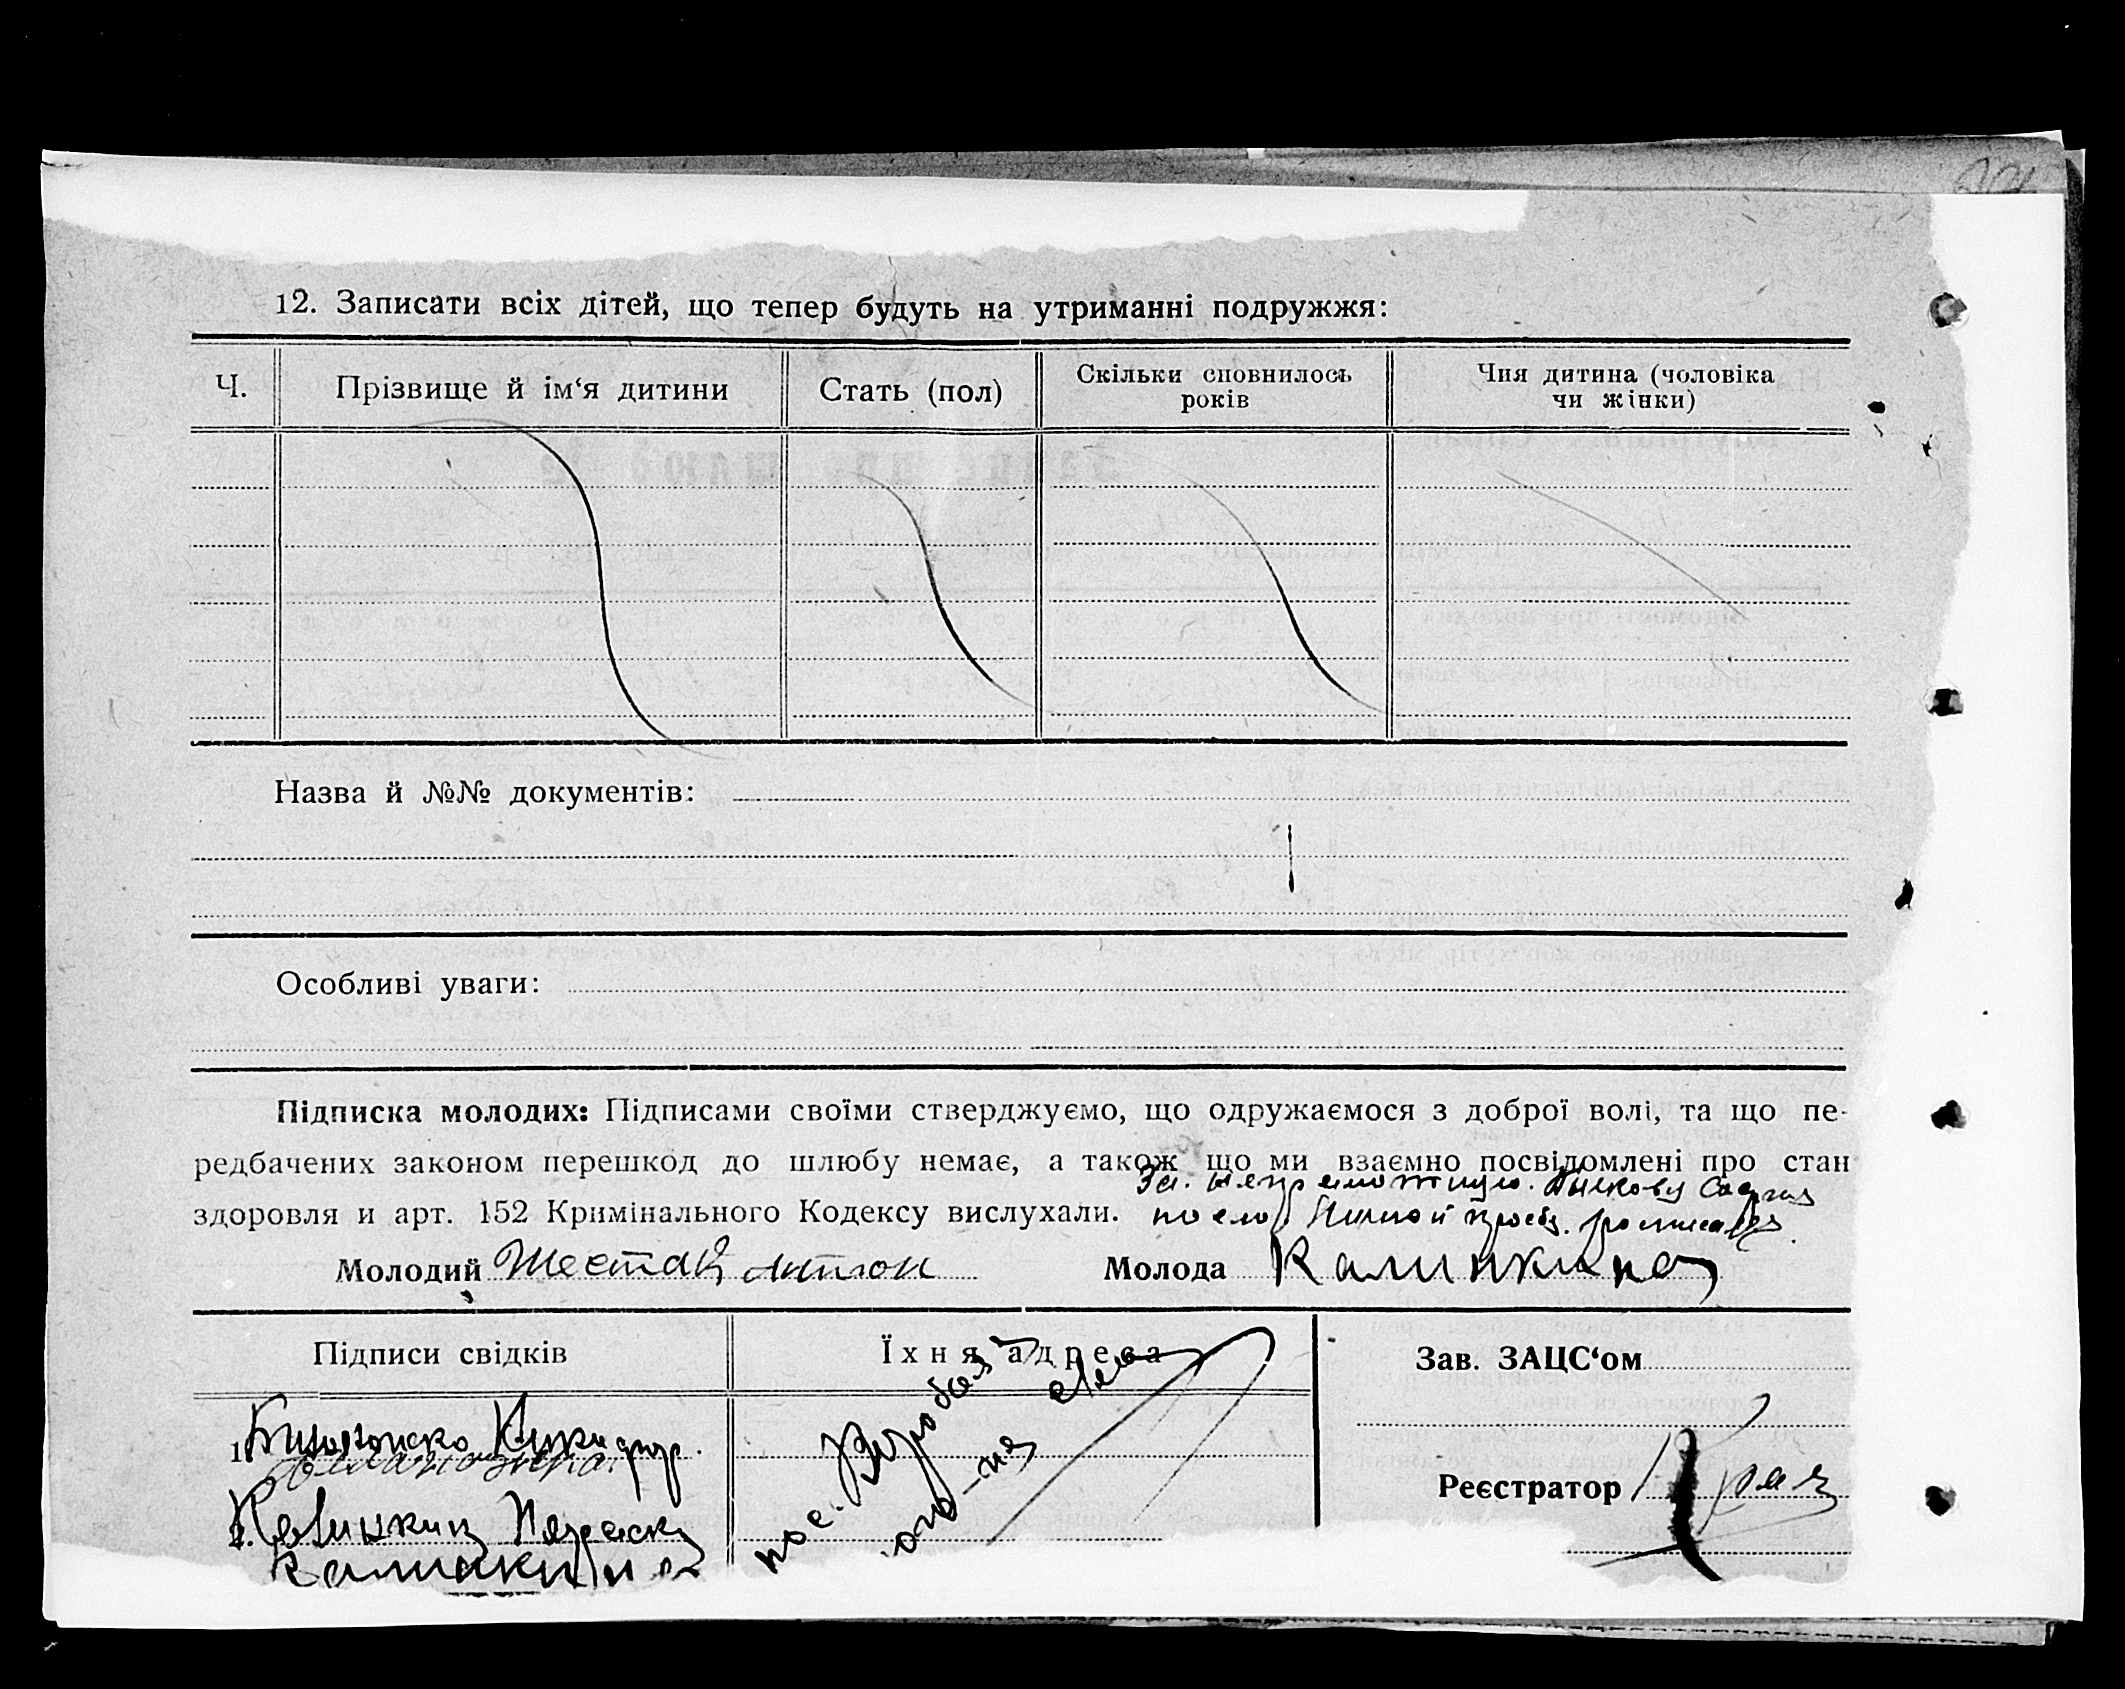 12. Записати всіх дітей, що тепер будуть на утриманні подружжя:
Ч.
Прізвище й ім‘я дитини
Стать (пол)
Скільки сповнилось
років
Чия дитина (чоловіка
чи жінки)
Назва й №№ документів:
Особливі уваги:
Підписка молодих: Підписами своїми стверджуємо, що одружаємося з доброї волі, та що пе-
редбачених законом перешкод до шлюбу немає, а також що ми взаємно посвідомлені про стан
За неграмотную
здоровля и арт. 152 Кримінального Кодексу вислухали.
Молодий Шестак Антон
Молода Калинкина
Підписи свідків
Їхня адреса
Зав. ЗАЦС‘ом
1.
Реєстратор
2. Калинкин
Калинкина